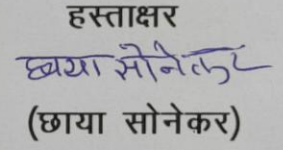 हस्ताक्षर
छाया सोनेकर
(छाया सोनेकर)